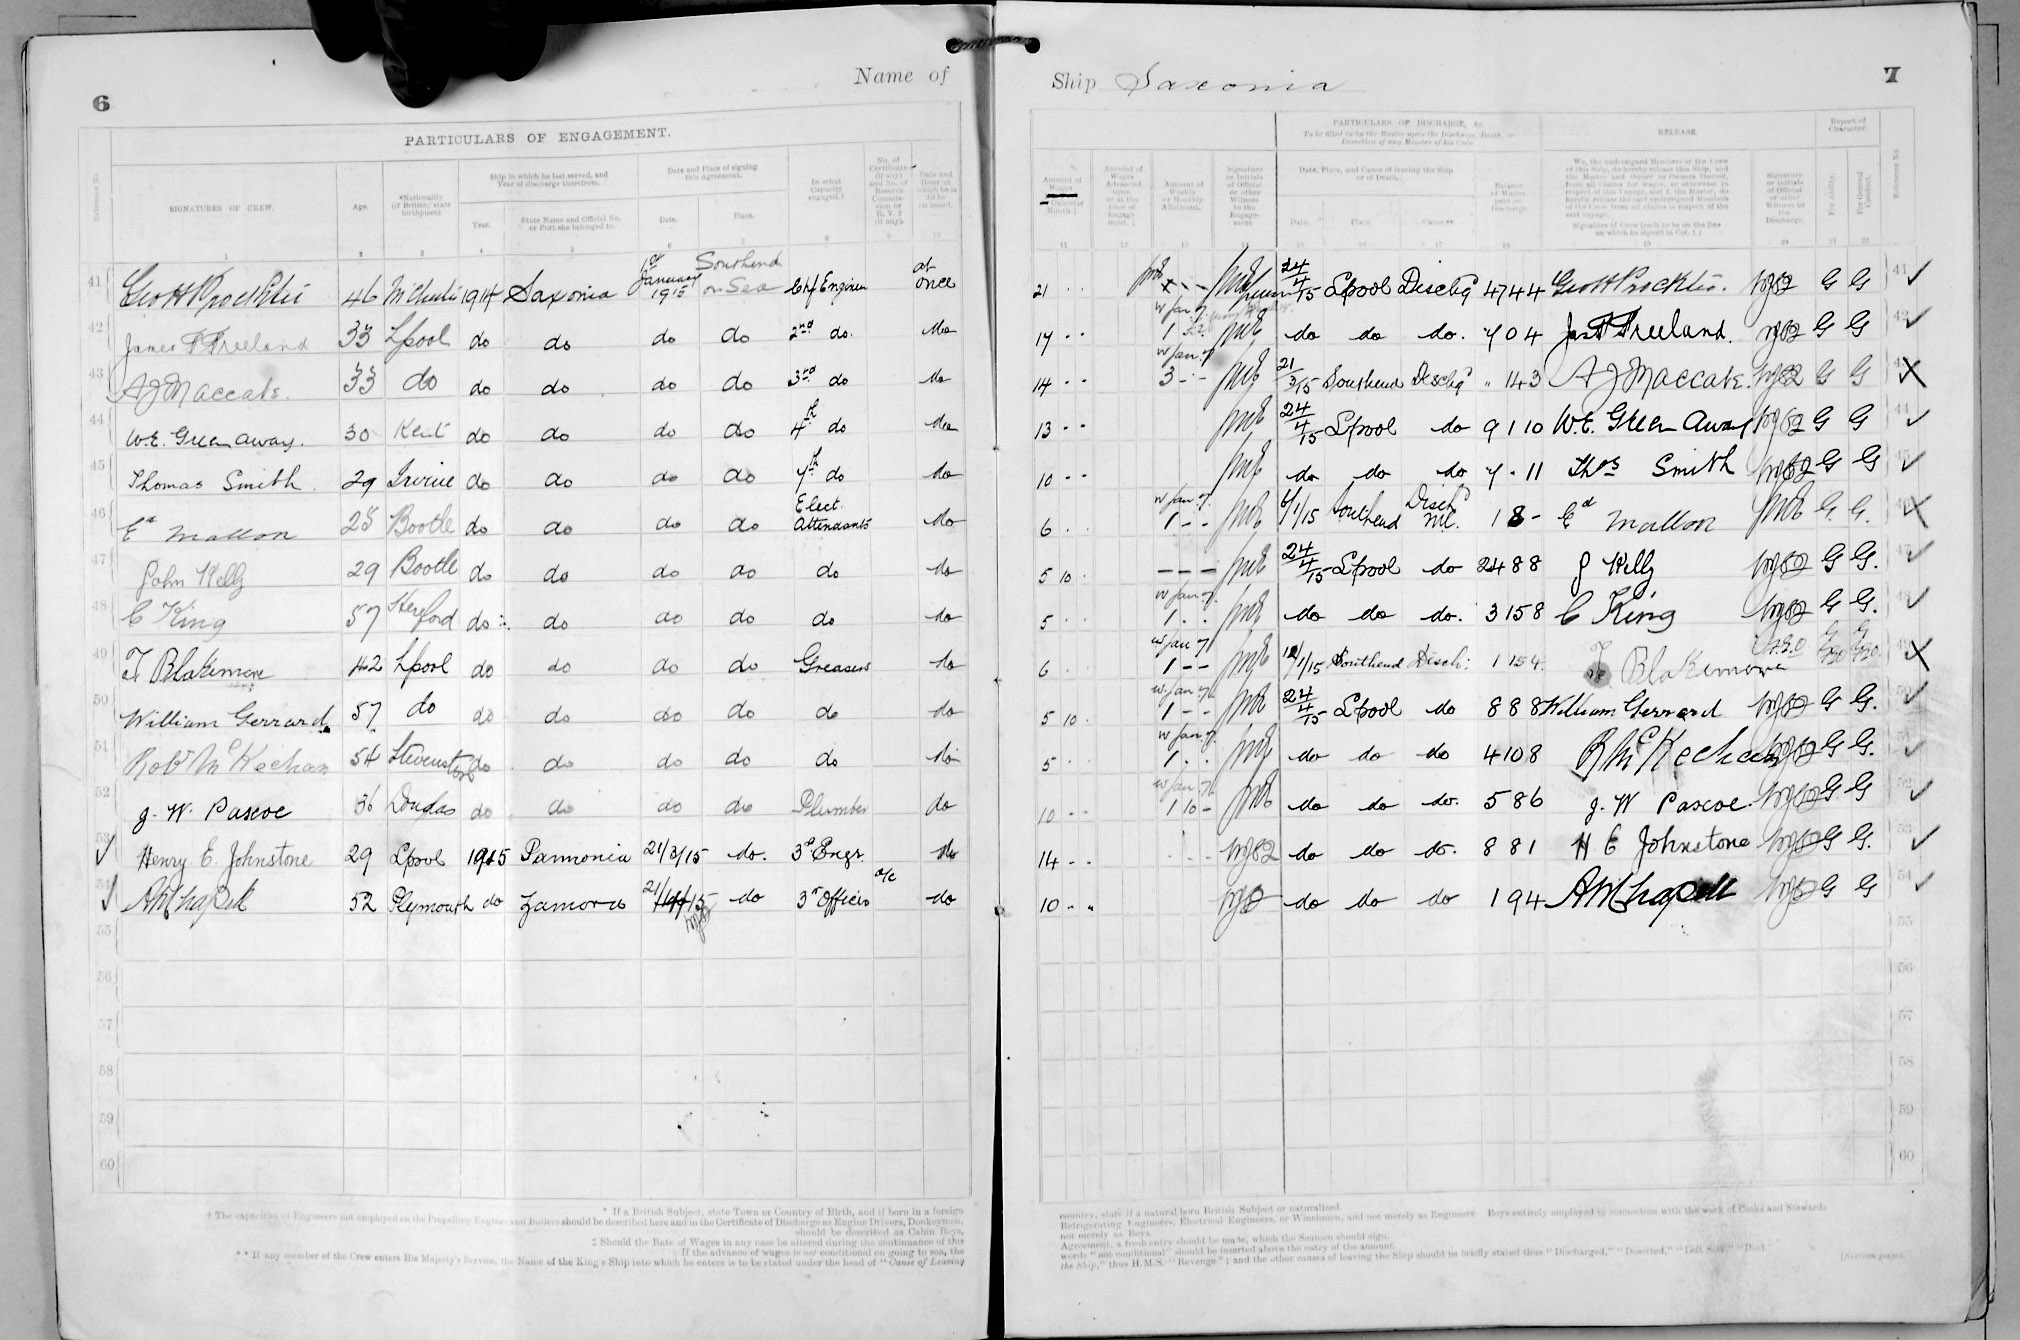 Name of
Ship Saxonia
6
7
PARTICULARS OF ENGAGEMENT.
PARTICULARS OF DISCHARGE, &c.
To be filled in by the Master upon the Discharge, Death, or Desertion of any Member of his Crew.
RELEASE.
Report of Character.
Reference No.
SIGNATURES OF CREW.
Age.
*Nationality (if British, state birthplace).
Ship in which he last served, and Year of discharge therefrom.
Year.
State Name and Official No. or Port she belonged to.
Date and Place of signing this Agreement.
Date.
Place.
In what Capacity engaged.†
No. of Certificate (if any) and No. of Reserve Commission or R.V.2 (if any).
Date and Hour at which he is to be on board.
Amount of Wages Calendar Month ‡
Amount of Wages Advanced upon or at the time of Engagement. ‡
Amount of Weekly or Monthly Allotment.
Signature or Initials of Official or other Witness to the Engagement
Date, Place, and Cause of leaving the Ship or of Death.
Date.
Place.
Cause**
Balance of Wages paid on Discharge.
We, the undersigned Members of the Crew of this Ship, do hereby release this Ship, and the Master and Owner or Owners thereof, from all Claims for Wages, or otherwise in respect of this Voyage, and I, the Master, do hereby release the said undersigned Members of the Crew from all claims in respect of the said voyage.
Signature of Crew (each to be on the line on which he signed in Col. 1.)
Signature or Initials of Official or other Witness to the Discharge.
For Ability.
For General Conduct.
Reference No.
1 2 3 4 5 6 7 8 9 10
11 12 13 14 15 16 17 18 19 20 21 22
41 Geo H Procktor 46 1914 Saxonia 1st January 1915 Southend on Sea Chf Engineer at once 21 - - 24/4/15 Lpool Dischg 4744 Geo H Procktor G G 41
42 James F Freeland 33 Lpool do do do do 2nd do. do 17 - - do do do. 704 Jas F Freeland. G G 42
43 A J Maccabe. 33 do do do do do 3rd do do 14 - - 3 - - 21/3/15 Southend Dischg 143 A J Maccabe. G G
44 W.E. Greenaway. 30 Kent do do do do 4th do do 13 - - 24/4/15 Lpool do 9110 W.E. Greenaway G G 44
45 Thomas Smith 29 Irvine do do do do 7th do do 10 - - do do do 7 - 11 Thos Smith G G
46 Ed Mallon 25 Bootle do do do do Elect. Attendants do 6 1 - - 6/1/15 Southend Disch 18 - Ed Mallon G. G.
47 John Kelly 29 Bootle do do do do do do 5 10 - - - 24/4/15 Lpool do 2488 J Kelly G G. 47
48 C King 57 Hereford do do do do do do 5 1 do do do. 3158 C King G G.
49 T Blakemore 42 Lpool do do do do Greasers do 6 1 - - 1/15 Southend Disch: 1154 T Blakemore
50 William Gerrard 57 do do do do do do do 5 10 1 - - 24/4/15 Lpool do 888 William Gerrard G G.
51 Robt McKechan 54 Stevenston do do do do do do 5 1 do do do 4108 R McKechan G G.
52 J. W. Pascoe 36 Douglas do do do do Plumber do 10 - - 1 10 - do do do. 586 J. W Pascoe. G G 52
53 Henry E. Johnstone 29 Lpool 1915 Pannonia 21/3/15 do. 3rd Engr. do 14 - - do do do. 881 H E Johnstone G G. 53
54 A W Chapell 52 Plymouth do Zamora 21/ /15 do 3rd Officer a/c do 10 - - do do do 194 A W Chapell G G 54
55 55
56 56
57 57
58 58
59 59
60 60
* If a British Subject, state Town or Country of Birth, and if born in a foreign
country, state if a natural born British Subject or naturalized.
† The capacities of Engineers not employed on the Propelling Engines and Boilers should be described here and in the Certificate of Discharge as Engine Drivers, Donkeymen,
Refrigerating Engineers, Electrical Engineers, or Winchmen, and not merely as Engineers. Boys entirely employed in connection with the work of Cooks and Stewards
should be described as Cabin Boys,
not merely as Boys.
‡ Should the Rate of Wages in any case be altered during the continuance of this
Agreement, a fresh entry should be made, which the Seamen should sign.
If the advance of wages is not conditional on going to sea, the
words "not conditional" should be inserted above the entry of the amount.
** If any member of the Crew enters His Majesty's Service, the Name of the King's Ship into which he enters is to be stated under the head of "Cause of Leaving
the Ship," thus H.M.S. "Revenge"; and the other causes of leaving the Ship should be briefly stated thus "Discharged," "Deserted," "Left Sick," "Died."